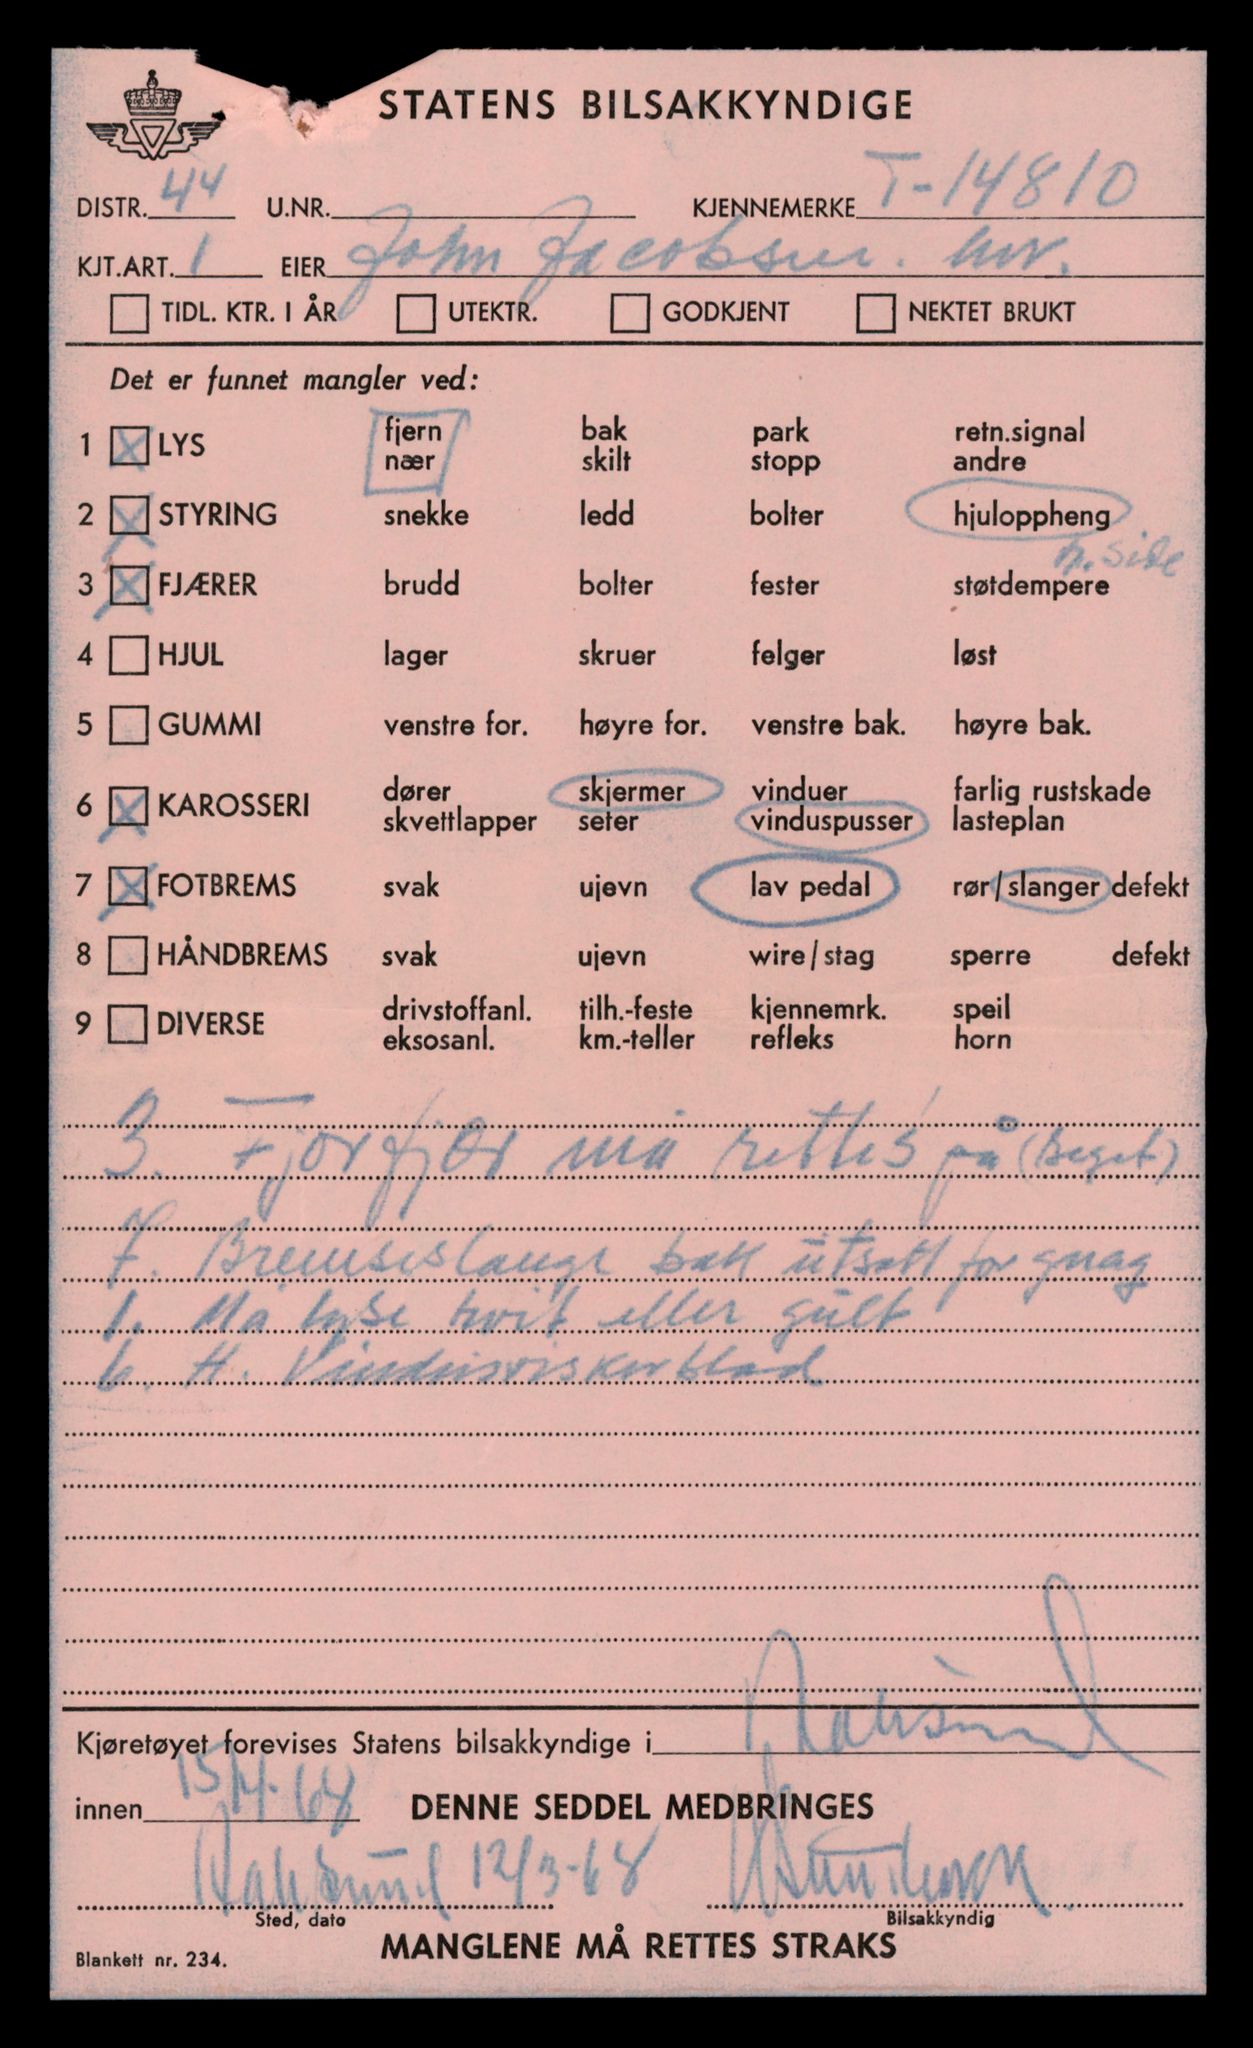 STATENS BILSAKKYNDIGE
DISTR. 44 U.NR. KJENNEMERKE T-14810
KJT.ART. 1 EIER John Jacobsen.
TIDL. KTR. I ÅR UTEKTR. GODKJENT NEKTET BRUKT
Det er funnet mangler ved:
1 LYS fjern bak park retn.signal
nær skilt stopp andre
2 STYRING snekke ledd bolter hjuloppheng
h. side
3 FJÆRER brudd bolter fester støtdempere
4 HJUL lager skruer felger løst
5 GUMMI venstre for. høyre for. venstre bak. høyre bak.
6 KAROSSERI dører skjermer vinduer farlig rustskade
skvettlapper seter vinduspusser lasteplan
7 FOTBREMS svak ujevn lav pedal rør/slanger defekt
8 HÅNDBREMS svak ujevn wire/stag sperre defekt
9 DIVERSE drivstoffanl. tilh.-feste kjennemrk. speil
eksosanl. km.-teller refleks horn
3. må rettes på (Beget)
7. Bremseslange bak utsatt for gnag
1. Må lyse hvit eller gult
6. H. Vindusviskerblad
Kjøretøyet forevises Statens bilsakkyndige i Batnfjord
innen 15/4-68 DENNE SEDDEL MEDBRINGES
12/3-68
Sted, dato Bilsakkyndig
MANGLENE MÅ RETTES STRAKS
Blankett nr. 234.